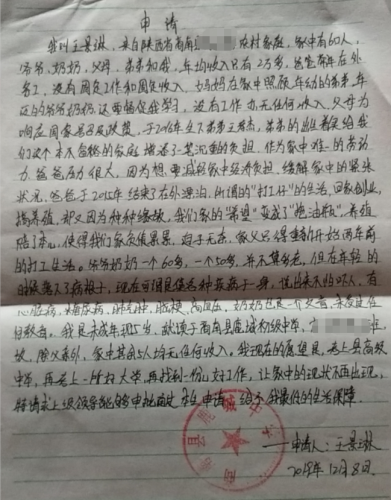 申请
我叫王景琳，来自陕西省商南 农村家庭，家中有6口人，
爷爷、奶奶、父母、弟弟和我，年均收入只有2万多，爸爸常年在外
务工，没有固定工作和固定收入，妈妈在家中照顾年幼的弟弟、年
迈的爷爷奶奶还要给我学习，没有工作亦无任何收入，父母为
响应国家号召及政策，于2016年生下弟弟王 ，弟弟的出生更给我
们这个本不富裕的家庭增添了一笔沉重的负担，作为家中唯一的劳动
力，爸爸压力很大，因为想要减轻家中经济负担，缓解家中的紧张
状况，爸爸于2015年结束了在外漂泊，所谓的"打工仔"的生活，回家创业
搞养殖，却又因为种种缘故，我们家的"希望"变成了"炮油瓶"，养殖
赔了本，使得我们家负债累累，迫于无奈，家父只得重新开始两年前
的打工生活。爷爷奶奶一个60多，一个50多，并不算多老，但在年轻的
时候落下了病根子，现在可谓是各种疾病于一身，说出来不怕吓人，有
心脏病、糖尿病、肺气肿、脑梗、高血压，奶奶也是一个女者，
。我是未成年现15岁，就读于商南县鹿城初级中学，
级，除父亲外，家中其余5人均无任何收入。我现在的愿望是，考上县高级
中学，再考上一所好大学，再找到一份好工作，让家中的现状不再出现，
特请求上级领导能够审批商定学生申请，给予我最低的生活保障。
申请人：王景琳
2018年12月8日